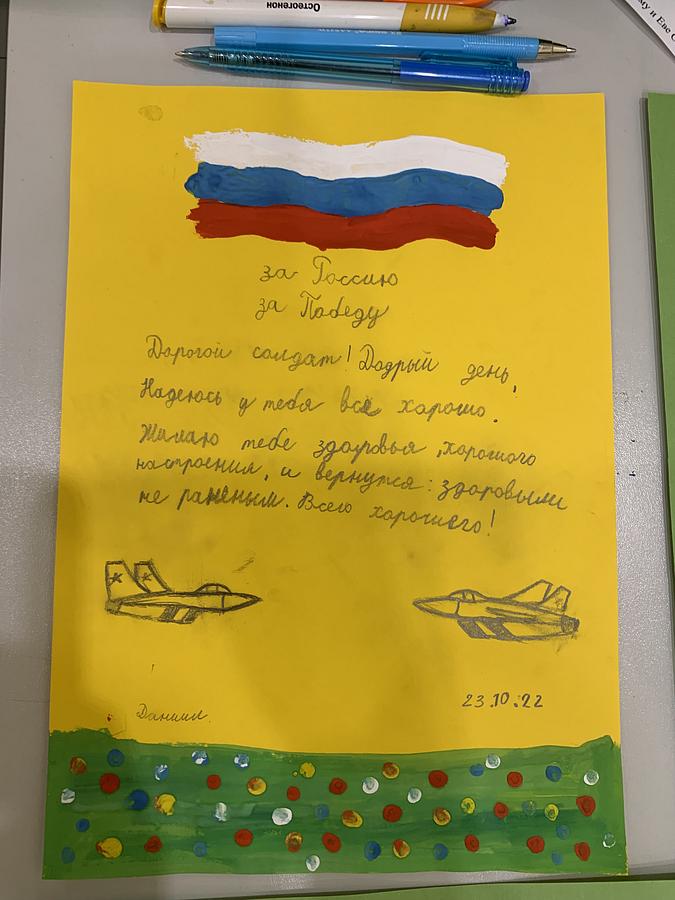 Остеогенон
му и Еве С
за Россию
за Победу
Дорогой солдат! Додрый день,
Надеюсь у тебя все хорошо.
Жилаю тебе здоровья, хорошого
настроения, и вернутся: здоровыми
не раненым. Всего хорошего!
Даниил
23.10.22